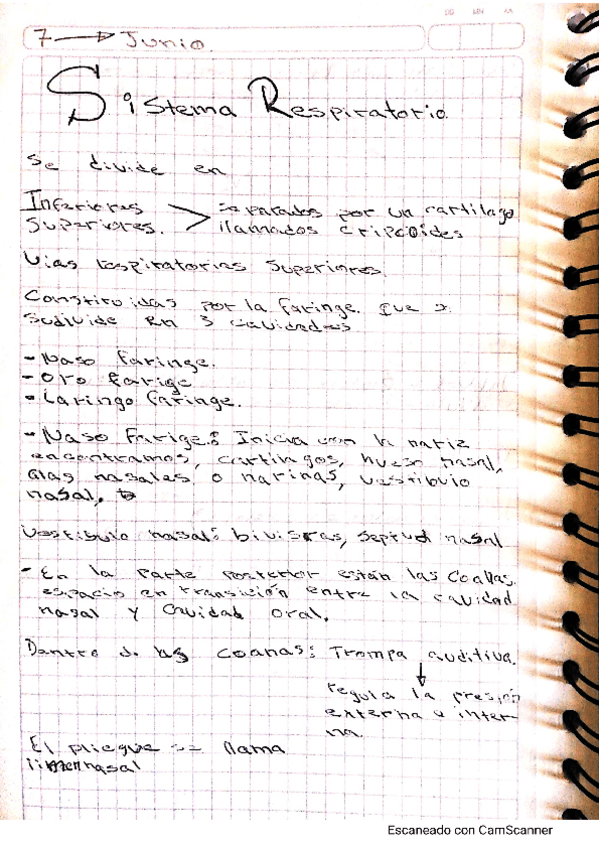 DD MM AA
7 → Junio.
Sistema Respiratorio.
Se divide en
Inferiores > Separados por un cartilago
Superiores. llamados cripcoides
Vias respiratorias superiores.
Constituidas por la faringe. que se
sudivide en 3 cavidades
- Naso faringe.
- Oro farige
- Laringo faringe.
- Naso Farige: Inicia con la nariz
encontramos, cartilagos, hueso nasal,
alas nasales o narinas, vestibulo
nasal.
Vestibulo nasal: septud nasal
- En la parte posterior están las Coanas.
espacio en transición entre la cavidad
nasal y Cavidad oral.
Dentro de las coanas: Trompa auditiva.
↓
regula la presión
externa e inter-
na.
El pliegue se llama
limen nasal
Escaneado con CamScanner